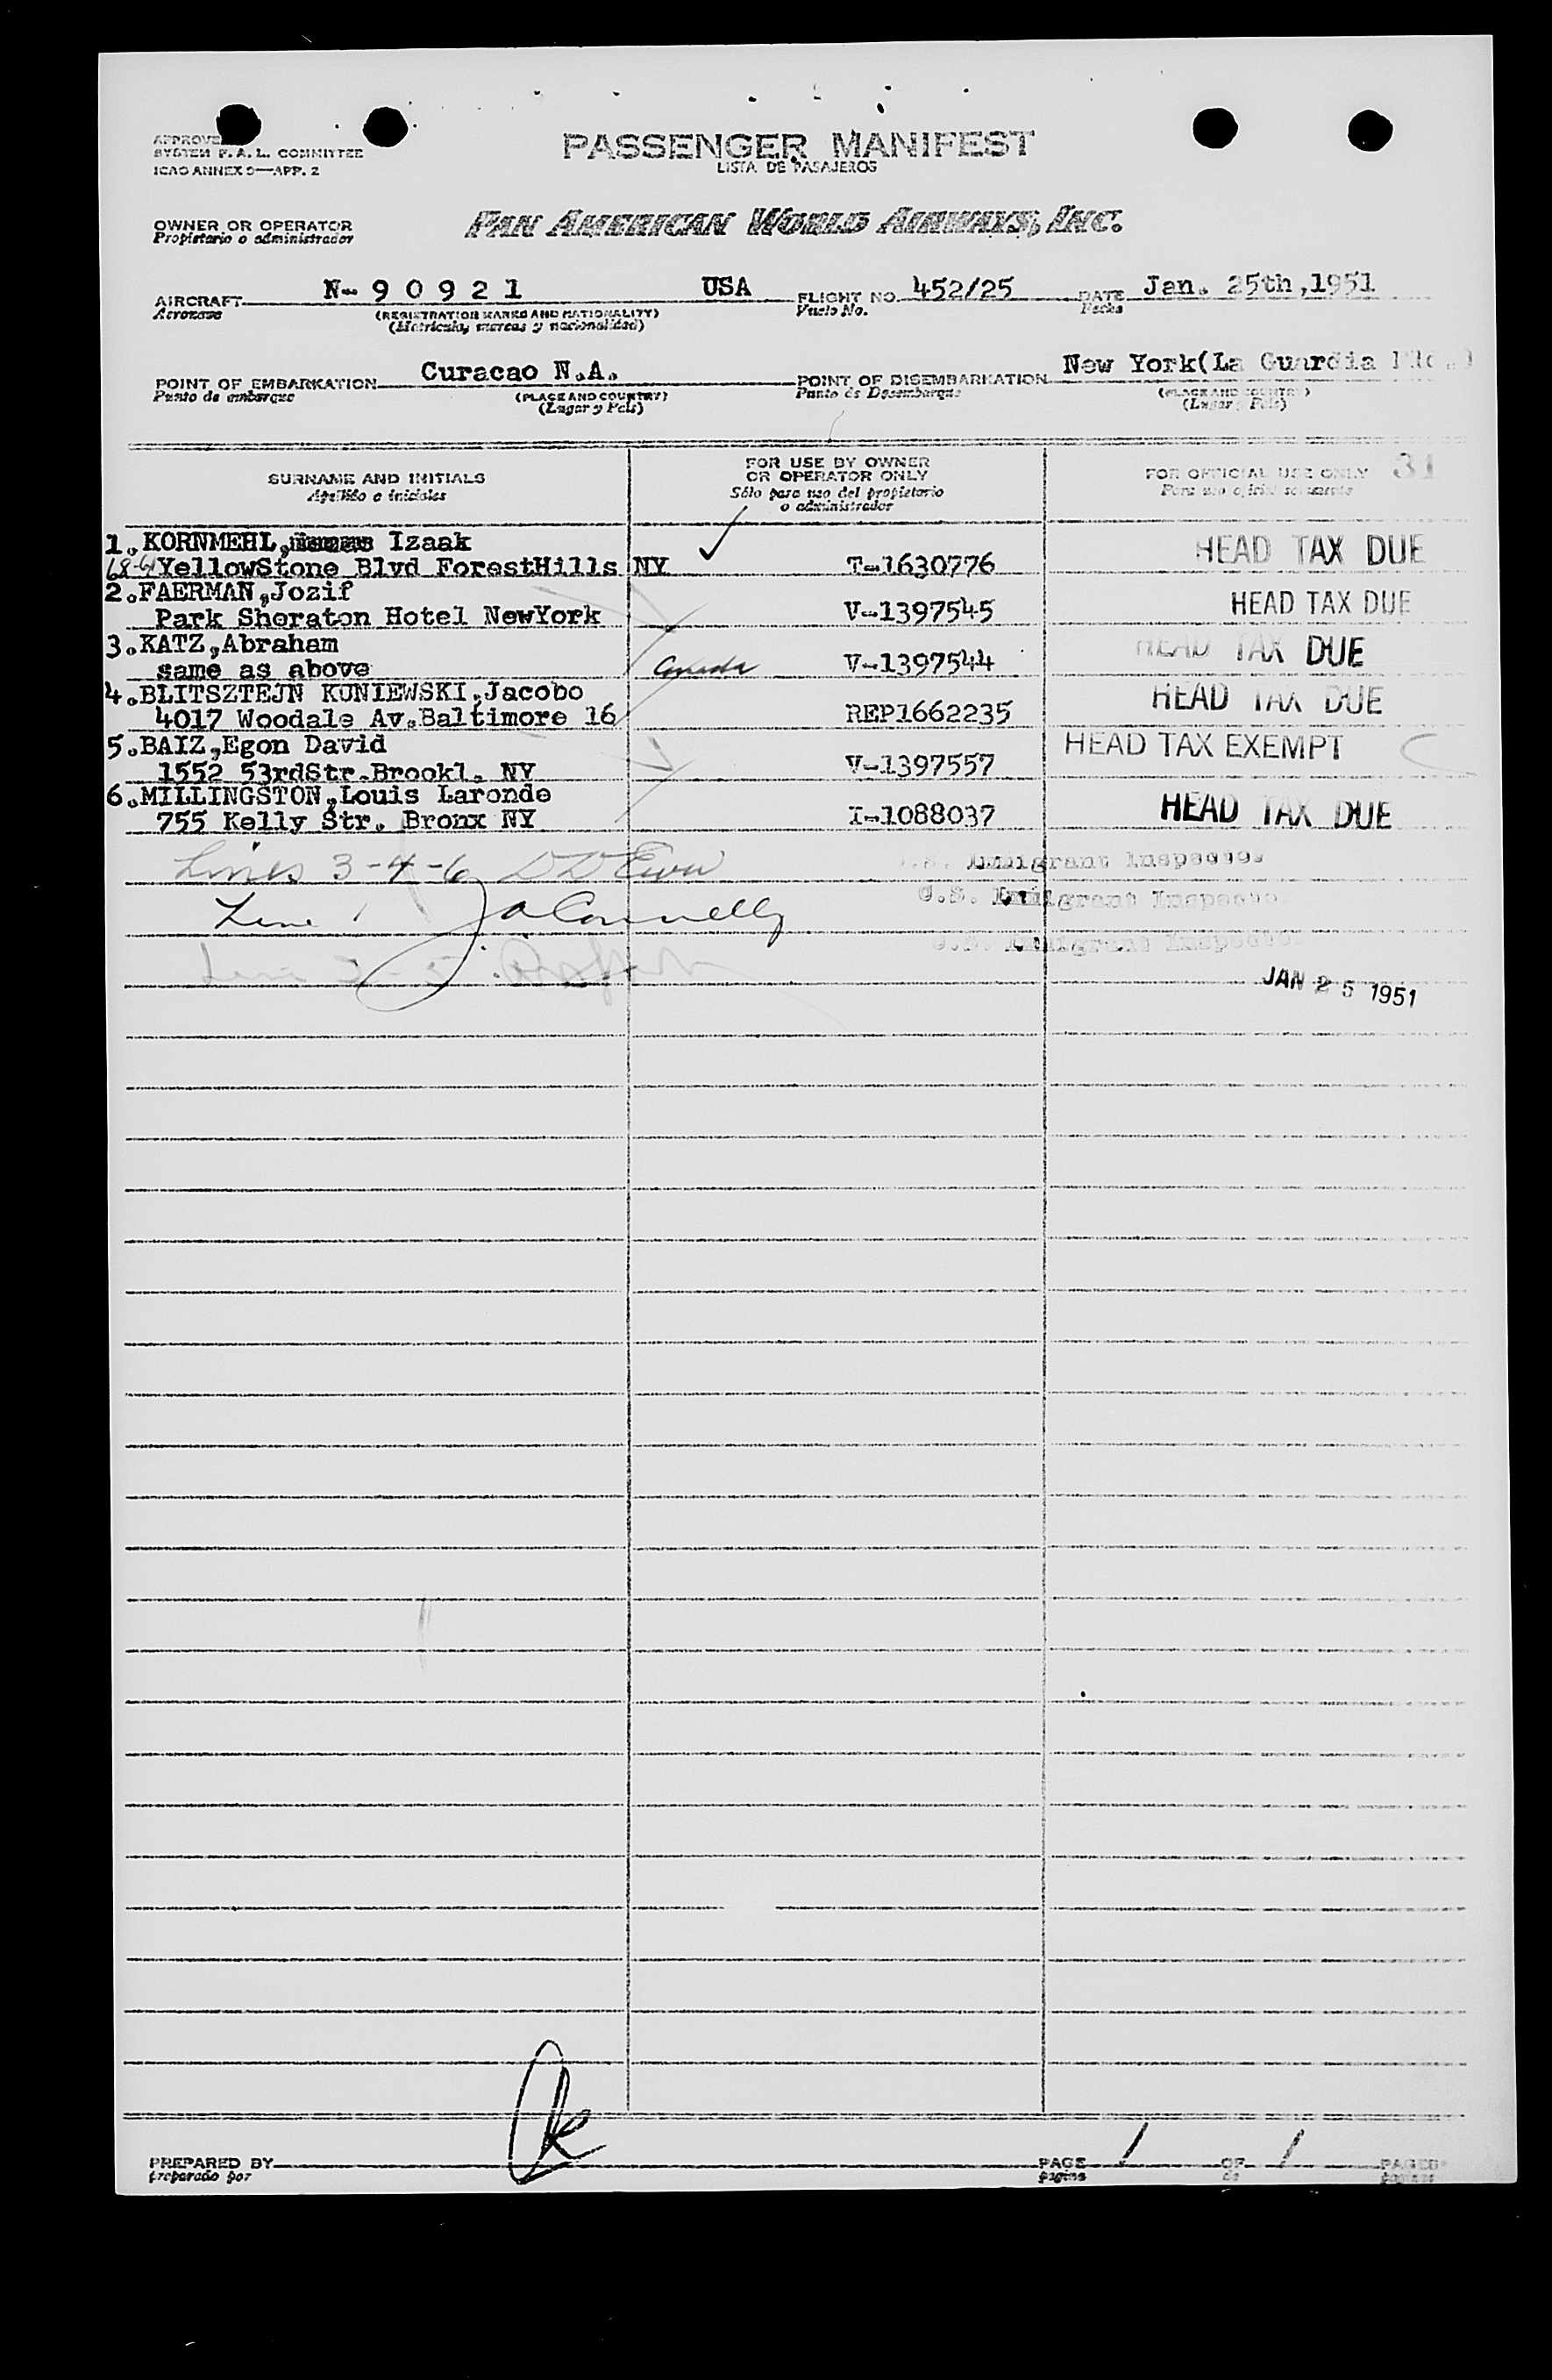 PASSENGER MANIFEST
LISTA DE PASAJEROS
SYSTEM F.A.L. COMMITTEE
ICAO ANNEX 9—APP. 2
OWNER OR OPERATOR PAN AMERICAN WORLD AIRWAYS, INC.
Propietario o administrador
AIRCRAFT N-90921 USA FLIGHT NO. 452/25 DATE Jan. 25th,1951
Aeronave (REGISTRATION MARKS AND NATIONALITY) Vuelo No. Fecha
(Matricula, marcas y nacionalidad)
POINT OF EMBARKATION Curacao N.A. POINT OF DISEMBARKATION New York(La Guardia
Punto de embarque (PLACE AND COUNTRY) Punto de Desembarque (PLACE AND COUNTRY)
(Lugar y País) (Lugar y País)
SURNAME AND INITIALS FOR USE BY OWNER OR OPERATOR ONLY FOR OFFICIAL USE ONLY 31
Apellido e iniciales Sólo para uso del propietario o administrador Para uso oficial solamente
1.KORNMEHL, Izaak
YellowStone Blvd ForestHills NY T-1630776 HEAD TAX DUE
2.FAERMAN,Jozif
Park Sheraton Hotel NewYork V-1397545 HEAD TAX DUE
3.KATZ,Abraham
same as above Canada V-1397544 HEAD TAX DUE
4.BLITSZTEJN KONIEWSKI,Jacobo
4017 Woodale Av.Baltimore 16 REP1662235 HEAD TAX DUE
5.BAIZ,Egon David
1552 53rdStr.Brookl. NY V-1397557 HEAD TAX EXEMPT
6.MILLINGSTON,Louis Laronde
755 Kelly Str. Bronx NY I-1088037 HEAD TAX DUE
Lines 3-4-6 U.S. Immigrant Inspector
Line 1 J. A. Connelly U.S. Immigrant Inspector
Line U.S. Immigrant Inspector
JAN 25 1951
PREPARED BY PAGE 1 OF 1 PAGES
preparado por página de páginas